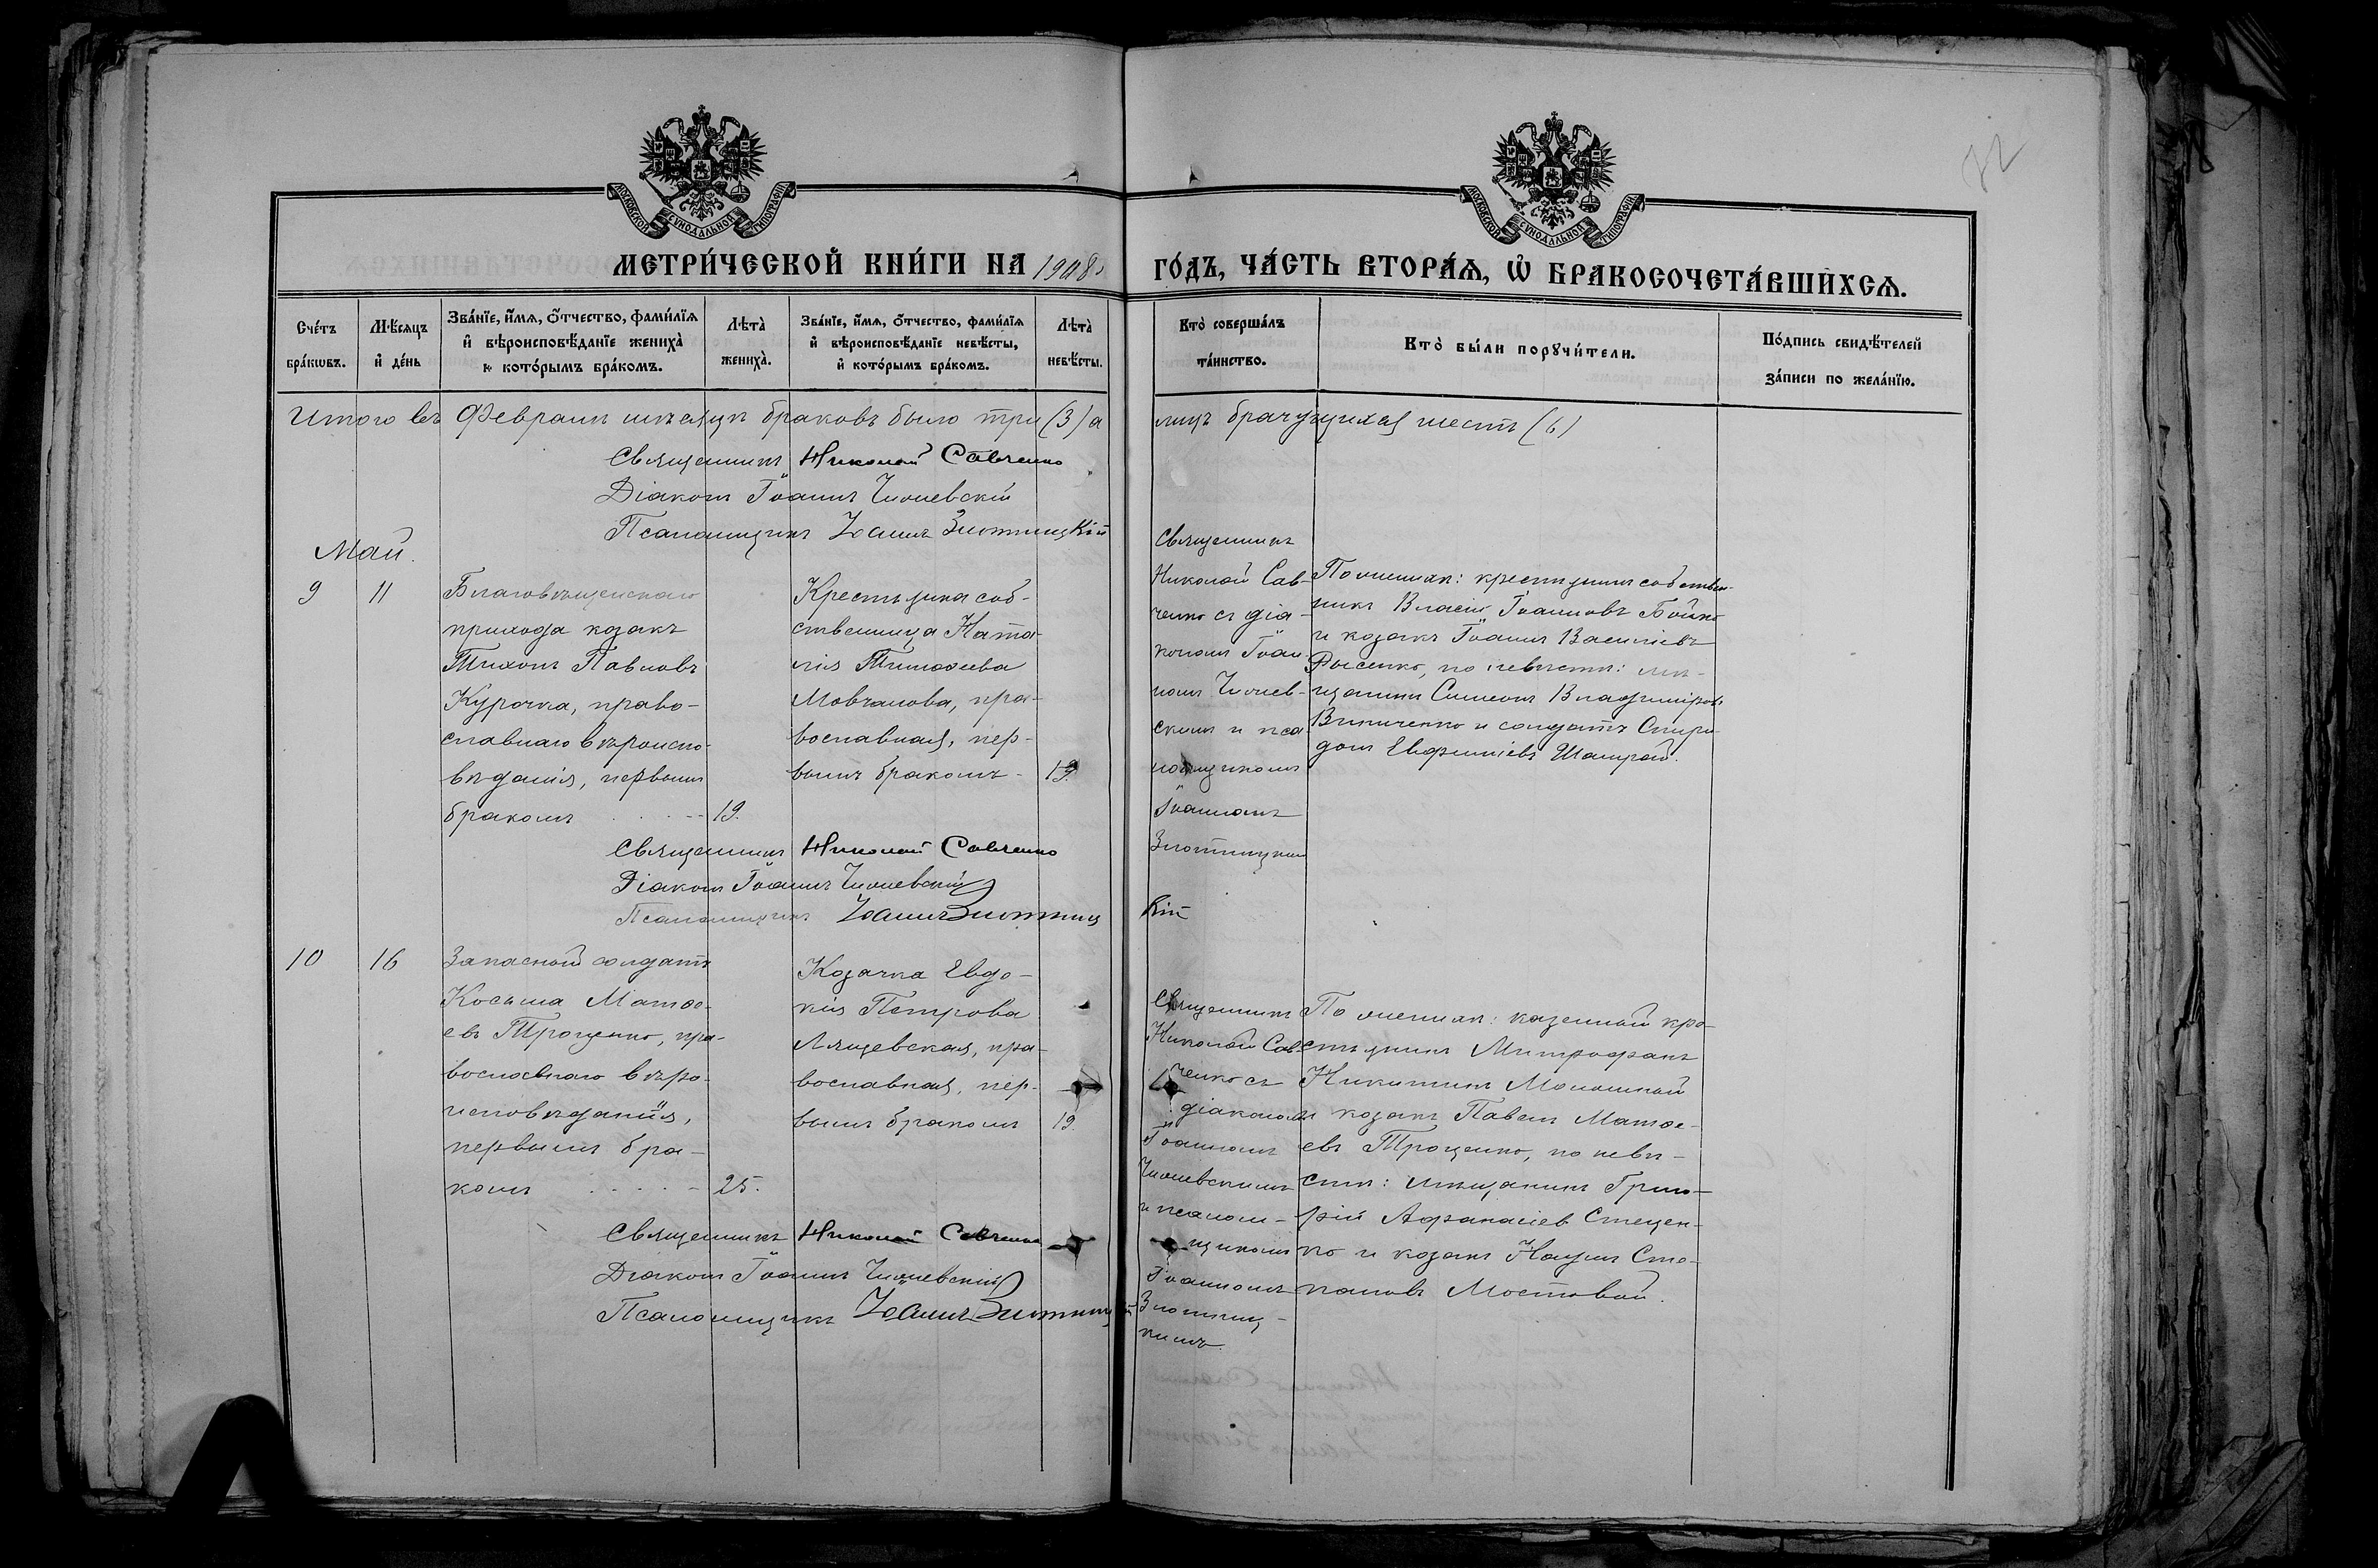 МОСКОВСКОЙ СѴНОДАЛЬНОЙ ТИПОГРАФІИ
МОСКОВСКОЙ СѴНОДАЛЬНОЙ ТИПОГРАФІИ
МЕТРИ́ЧЕСКОЙ КНИ́ГИ НА 1908
ГО́ДЪ, ЧА́СТЬ ВТОРА́Ѧ, Ѡ БРАКОСОЧЕТА́ВШИХСѦ.
Сче́тъ бра́кωвъ.
Мѣ́сяцъ и де́нь
Зва́нїе, и́мѧ, о́тчество, фами́лїѧ и вѣроисповѣ́данїе жениха̀ и кото́рымъ бра́комъ.
Лѣта̀ жениха̀.
Зва́нїе, и́мѧ, о́тчество, фами́лїѧ и вѣроисповѣ́данїе невѣ́сты, и кото́рымъ бра́комъ.
Лѣта̀ невѣ́сты.
Кто̀ соверша́лъ та́инство.
Кто̀ бы́ли порꙋчи́тели.
По́дпись свидѣ́телей за́писи по жела́нїю.
Итого въ Февралѣ мѣсяцѣ браковъ было три (3) а
лицъ брачущихся шесть (6)
Священникъ Николай Савченко
Діаконъ Іоаннъ
Псаломщикъ Іоаннъ Злотницкій
Май.
9
11
Благовѣщенскаго
прихода козакъ
Тихонъ Павловъ
Курочка, право-
славнаго вѣроиспо-
вѣданія, первымъ
бракомъ
19.
Крестьянка соб-
ственница Ната-
лія Тимоѳеева
Мовчанова, пра-
вославная, пер-
вымъ бракомъ
19.
Священникъ
Николай Сав-
ченко съ діа-
кономъ Іоан-
номъ
скимъ и пса
ломщикомъ
Іоанномъ
Злотницким
По женихѣ: крестьянинъ собствен-
никъ Власій Іоанновъ Бойко
и козакъ Іоаннъ Василіевъ
Лысенко, по невѣстѣ: мѣ-
щанинъ Симеонъ Владиміровъ
Винниченко и солдатъ Спири-
донъ Евфиміевъ Шамрай.
Священникъ Николай Савченко
Діаконъ Іоаннъ
Псаломщикъ Іоаннъ Злотниц
кій
10
16
Запасной солдатъ
Косьма Матѳе-
евъ Троценко, пра-
вославнаго вѣро-
исповѣданія,
первымъ бра-
комъ
25.
Козачка Евдо-
кія Петрова
Лящевская, пра-
вославная, пер-
вымъ бракомъ
19.
Священникъ
Николай Сав-
ченко съ
діакономъ
Іоанномъ
и псалом-
щикомъ
Іоанномъ
Злотниц-
кимъ.
По женихѣ: казенный кре-
стьянинъ Митрофанъ
Никитинъ
и козакъ Павелъ Матѳе-
евъ Троценко, по невѣ-
стѣ: мѣщанинъ Григо-
рій Аѳанасіевъ Стецен-
ко и козакъ Наумъ Сте-
пановъ Мостовой.
Священникъ Николай Савченко
Діаконъ Іоаннъ
Псаломщикъ Іоаннъ Злотницкій